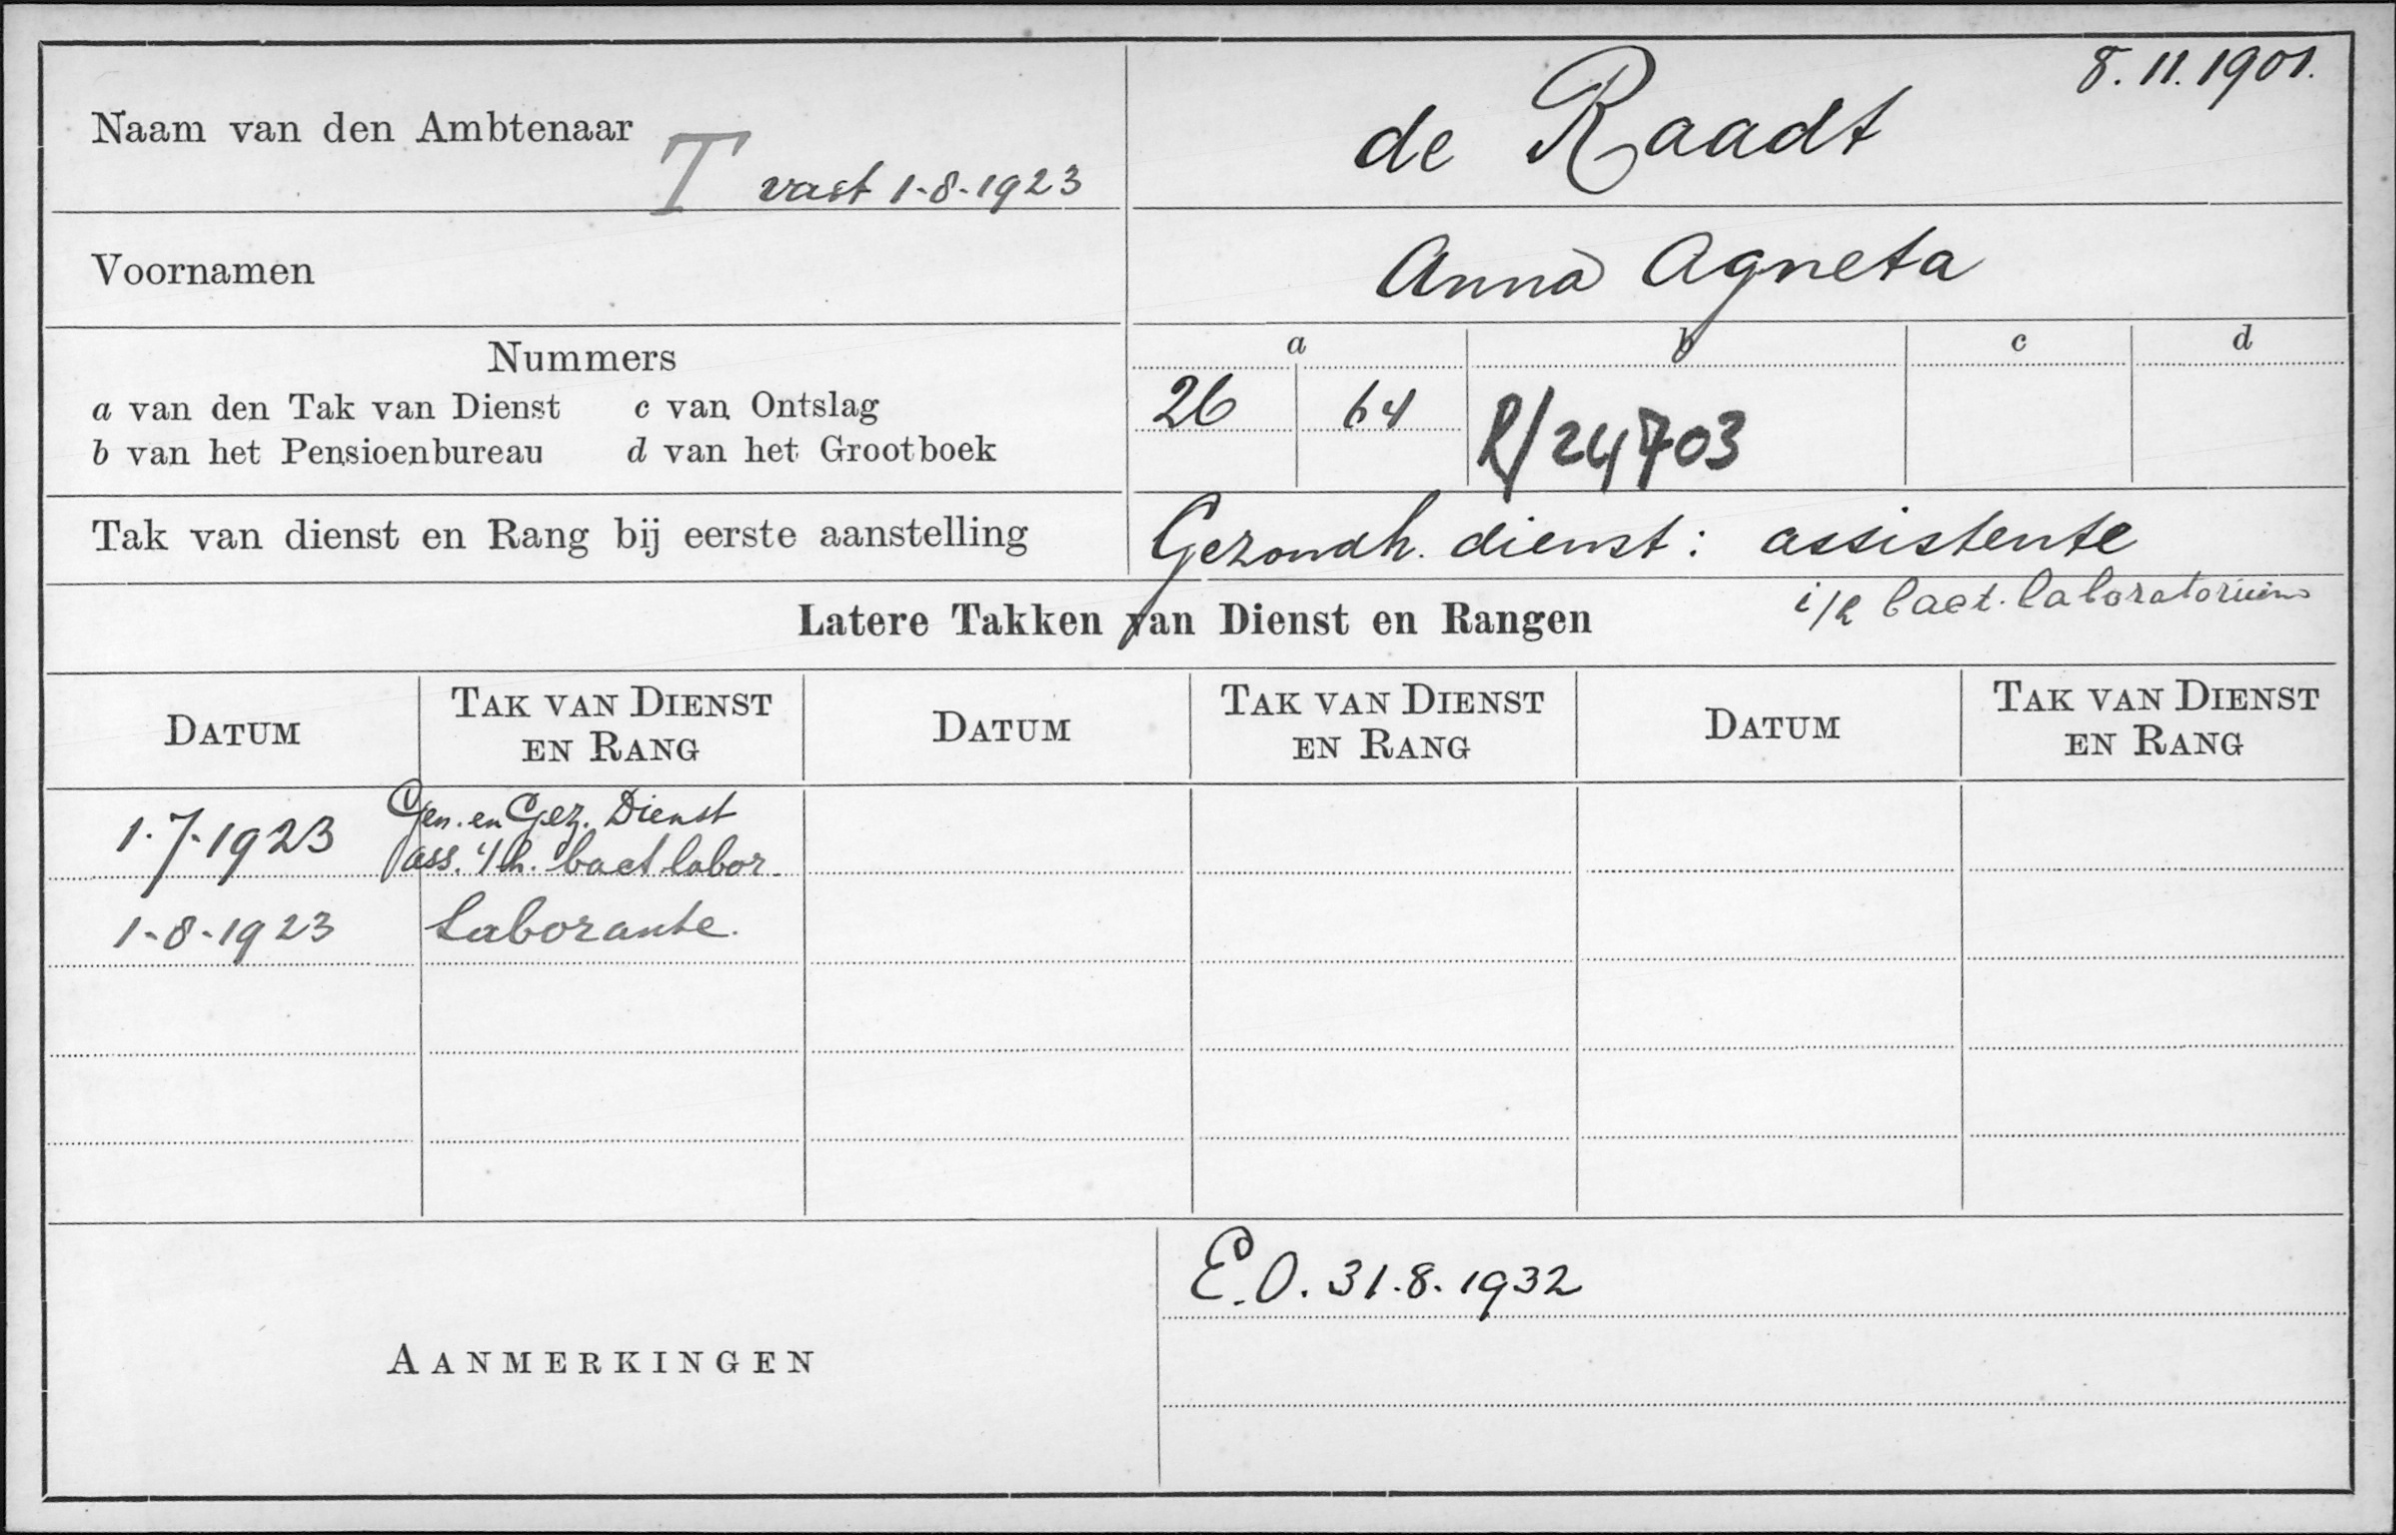 8.11.1901.
Naam van den Ambtenaar
de Raadt
T vast 1-8-1923
Voornamen
Anna Agneta
Nummers
a b c d
a van den Tak van Dienst c van Ontslag
b van het Pensioenbureau d van het Grootboek
26 64 R/24703
Tak van dienst en Rang bij eerste aanstelling
Gezondh. dienst: assistente
i/h bact. laboratorium
Latere Takken van Dienst en Rangen
DATUM TAK VAN DIENST EN RANG DATUM TAK VAN DIENST EN RANG DATUM TAK VAN DIENST EN RANG
1.7.1923 Gen. en Gez. Dienst
ass. i/h. bact labor.
1-8-1923 Laborante.
AANMERKINGEN
E.O. 31.8.1932